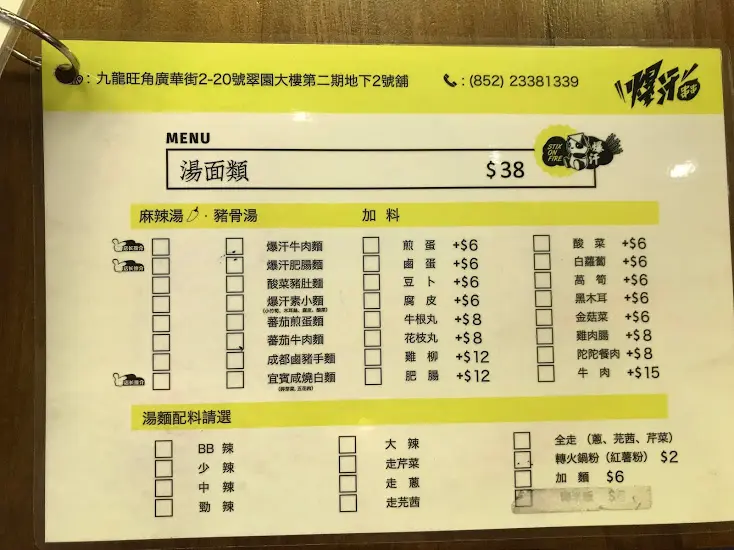 : 九龍旺角廣華街2-20號翠園大樓第二期地下2號舖
: (852) 23381339
爆汗
串串
MENU
湯面類 $38
STIX ON FIRE
爆汗
麻辣湯 · 豬骨湯 加料
爆汗牛肉麵 煎蛋 +$6 酸菜 +$6
爆汗肥腸麵 鹵蛋 +$6 白蘿蔔 +$6
酸菜豬肚麵 豆卜 +$6 萵筍 +$6
爆汗素小麵 腐皮 +$6 黑木耳 +$6
蕃茄煎蛋麵 牛根丸 +$8 金菇菜 +$6
蕃茄牛肉麵 花枝丸 +$8 雞肉腸 +$8
成都鹵豬手麵 雞柳 +$12 陀陀餐肉 +$8
宜賓咸燒白麵 肥腸 +$12 牛肉 +$15
湯麵配料請選
BB辣 大辣 全走（蔥、芫茜、芹菜）
少辣 走芹菜 轉火鍋粉（紅薯粉） $2
中辣 走蔥 加麵 $6
勁辣 走芫茜